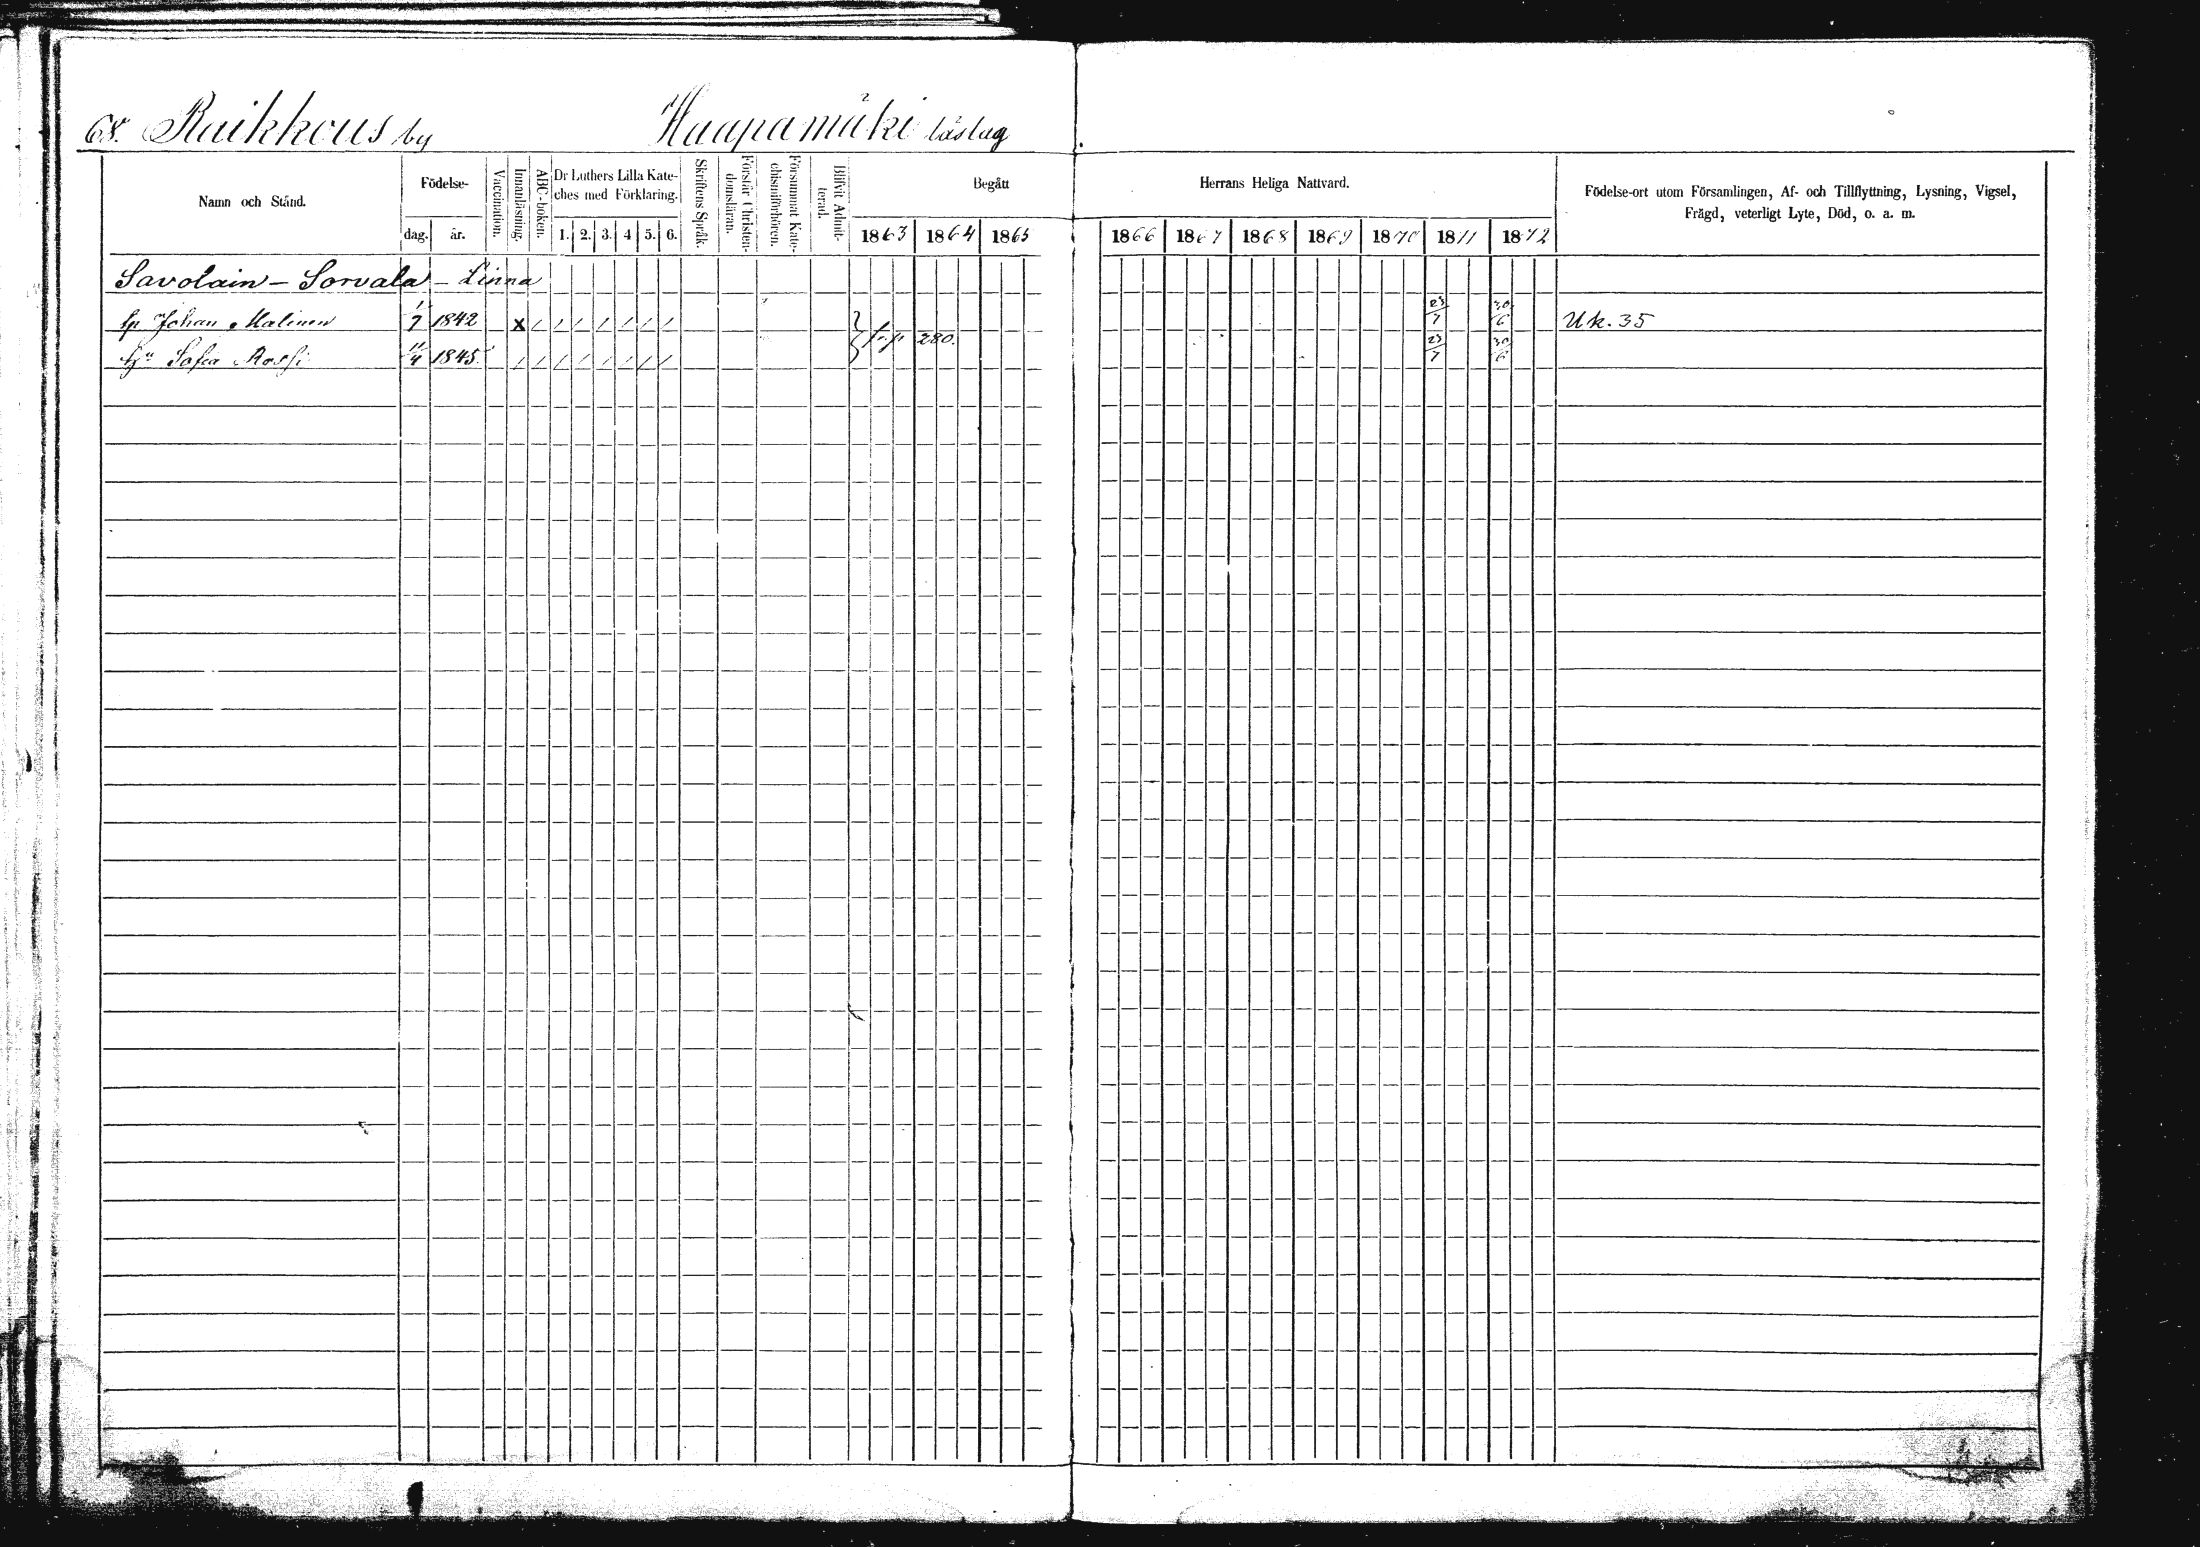 68. Raikkous by Haapamäki läslag
Namn och Stånd.
Födelse-
dag. år.
Vaccination.
Innanläsning.
ABC-boken.
Dr Luthers Lilla Kate-
ches med Förklaring.
1. 2. 3. 4 5. 6.
Skriftens Språk.
Förstår Christen-
domsläran.
Försummat Kate-
chismiförhören.
Blifvit Admit-
terad.
Begått Herrans Heliga Nattvard.
1863 1864 1865 1866 1867 1868 1869 1870 1871 1872
Födelse-ort utom Församlingen, Af- och Tillflyttning, Lysning, Vigsel,
Frägd, veterligt Lyte, Död, o. a. m.
Savolain – Sorvala – Linna
Johan Malinen 1/7 1842 x 23/7 30/6 Uk. 35
280.
Hu Sofia Rossi 11/4 1845 23/7 30/6